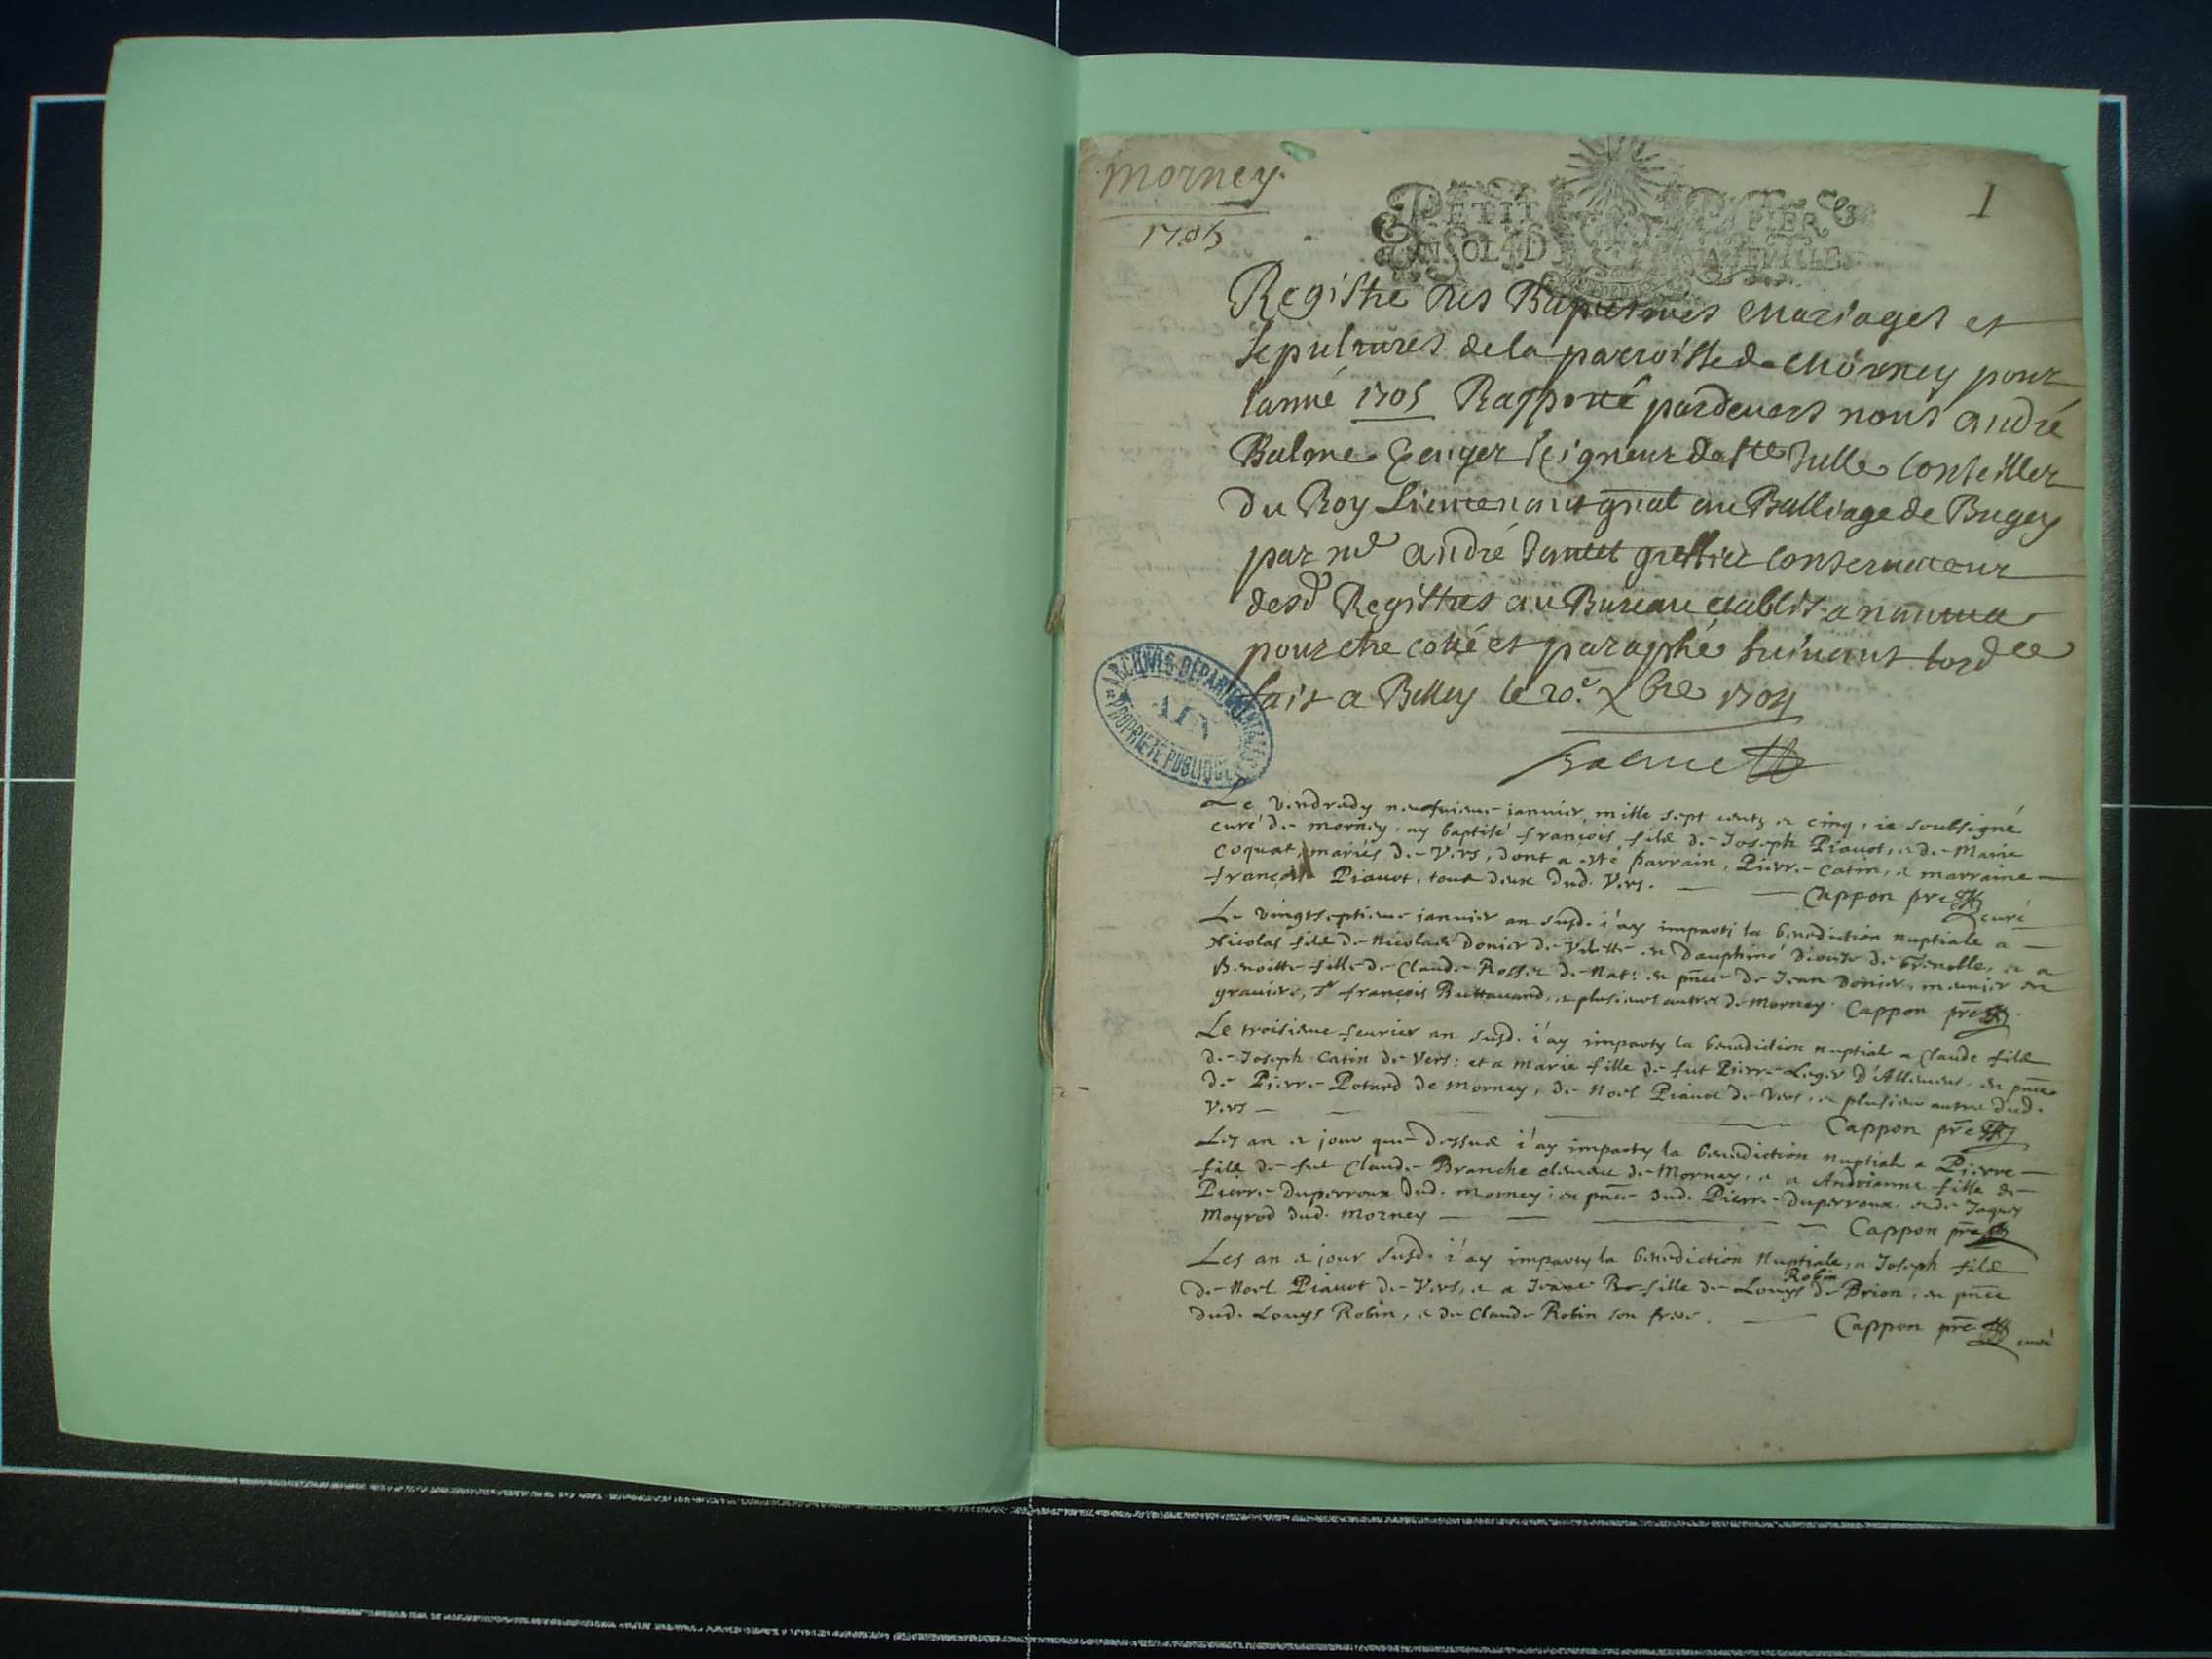 Morney
1705
1
PETIT PAPIER
UN SOL 4 D LA FEUILLE
Registre des Baptesmes Mariages et
sepultures de la parroisse de Morney pour
lanné 1705 Rapporté pardevers nous andré
Balme seigneur de ste Julle Conseiller
du Roy Lieutenant gñal au Balliage de Bugey
par me andré greffier conservateur
desd Registres au Bureau establis a nantua
pour etre cotté et paraphé suivant lordce
fait a Belley le 20e Xbre 1704
Balme
ARCHIVES DÉPARTEMENTALES
AIN
PROPRIÉTÉ PUBLIQUE
Le vendredy neufvieme ianvier, mille sept centz et cinq, ie soubsigné
curé de morney, ay baptisé françois fils de Joseph Piavot, et de Marie
Coquat, mariés de Vers, dont a esté parrain, Pierre Catin, et marraine
françoise Piavot, tous deux dud. Vers. Cappon pre
curé
Le vingtseptieme ianvier an susd. i'ay imparti la benediction nuptiale a
Nicolas fils de Nicolas Donier de en Dauphiné Diocese de Grenoble, et a
Benoitte fille de Claude Rosset de Nat: en pñce de Jean Donier, meunier en
graviere, Sr françois Buttavand, et plusieurs autres de Morney. Cappon pre
Le troisieme fevrier an susd. i'ay imparty la benediction nuptiale a Claude fils
de Joseph Catin de Vers: et a Marie fille de fut Pierre Leger D'Allement, en pñce
de Pierre Potard de Morney, de Noel Piavot de Vers, et plusieurs autres dud.
Vers Cappon pre
Les an et jour que dessus i'ay imparty la benediction nuptiale a Pierre
fils de fut Claude Branche de Morney, et a Andrianne fille de
Pierre Duperroux dud. morney; en pñce dud. Pierre Duperroux et de Jaques
Mayrod dud. Morney Cappon pre
Les an et jour susd. i'ay imparty la benediction Nuptiale, a Joseph fils
de Noel Piavot de Vers, et a Jeane Ro fille de Louys Robin de Brion, en pñce
dud. Louys Robin, et de Claude Robin son frere. Cappon pre
curé